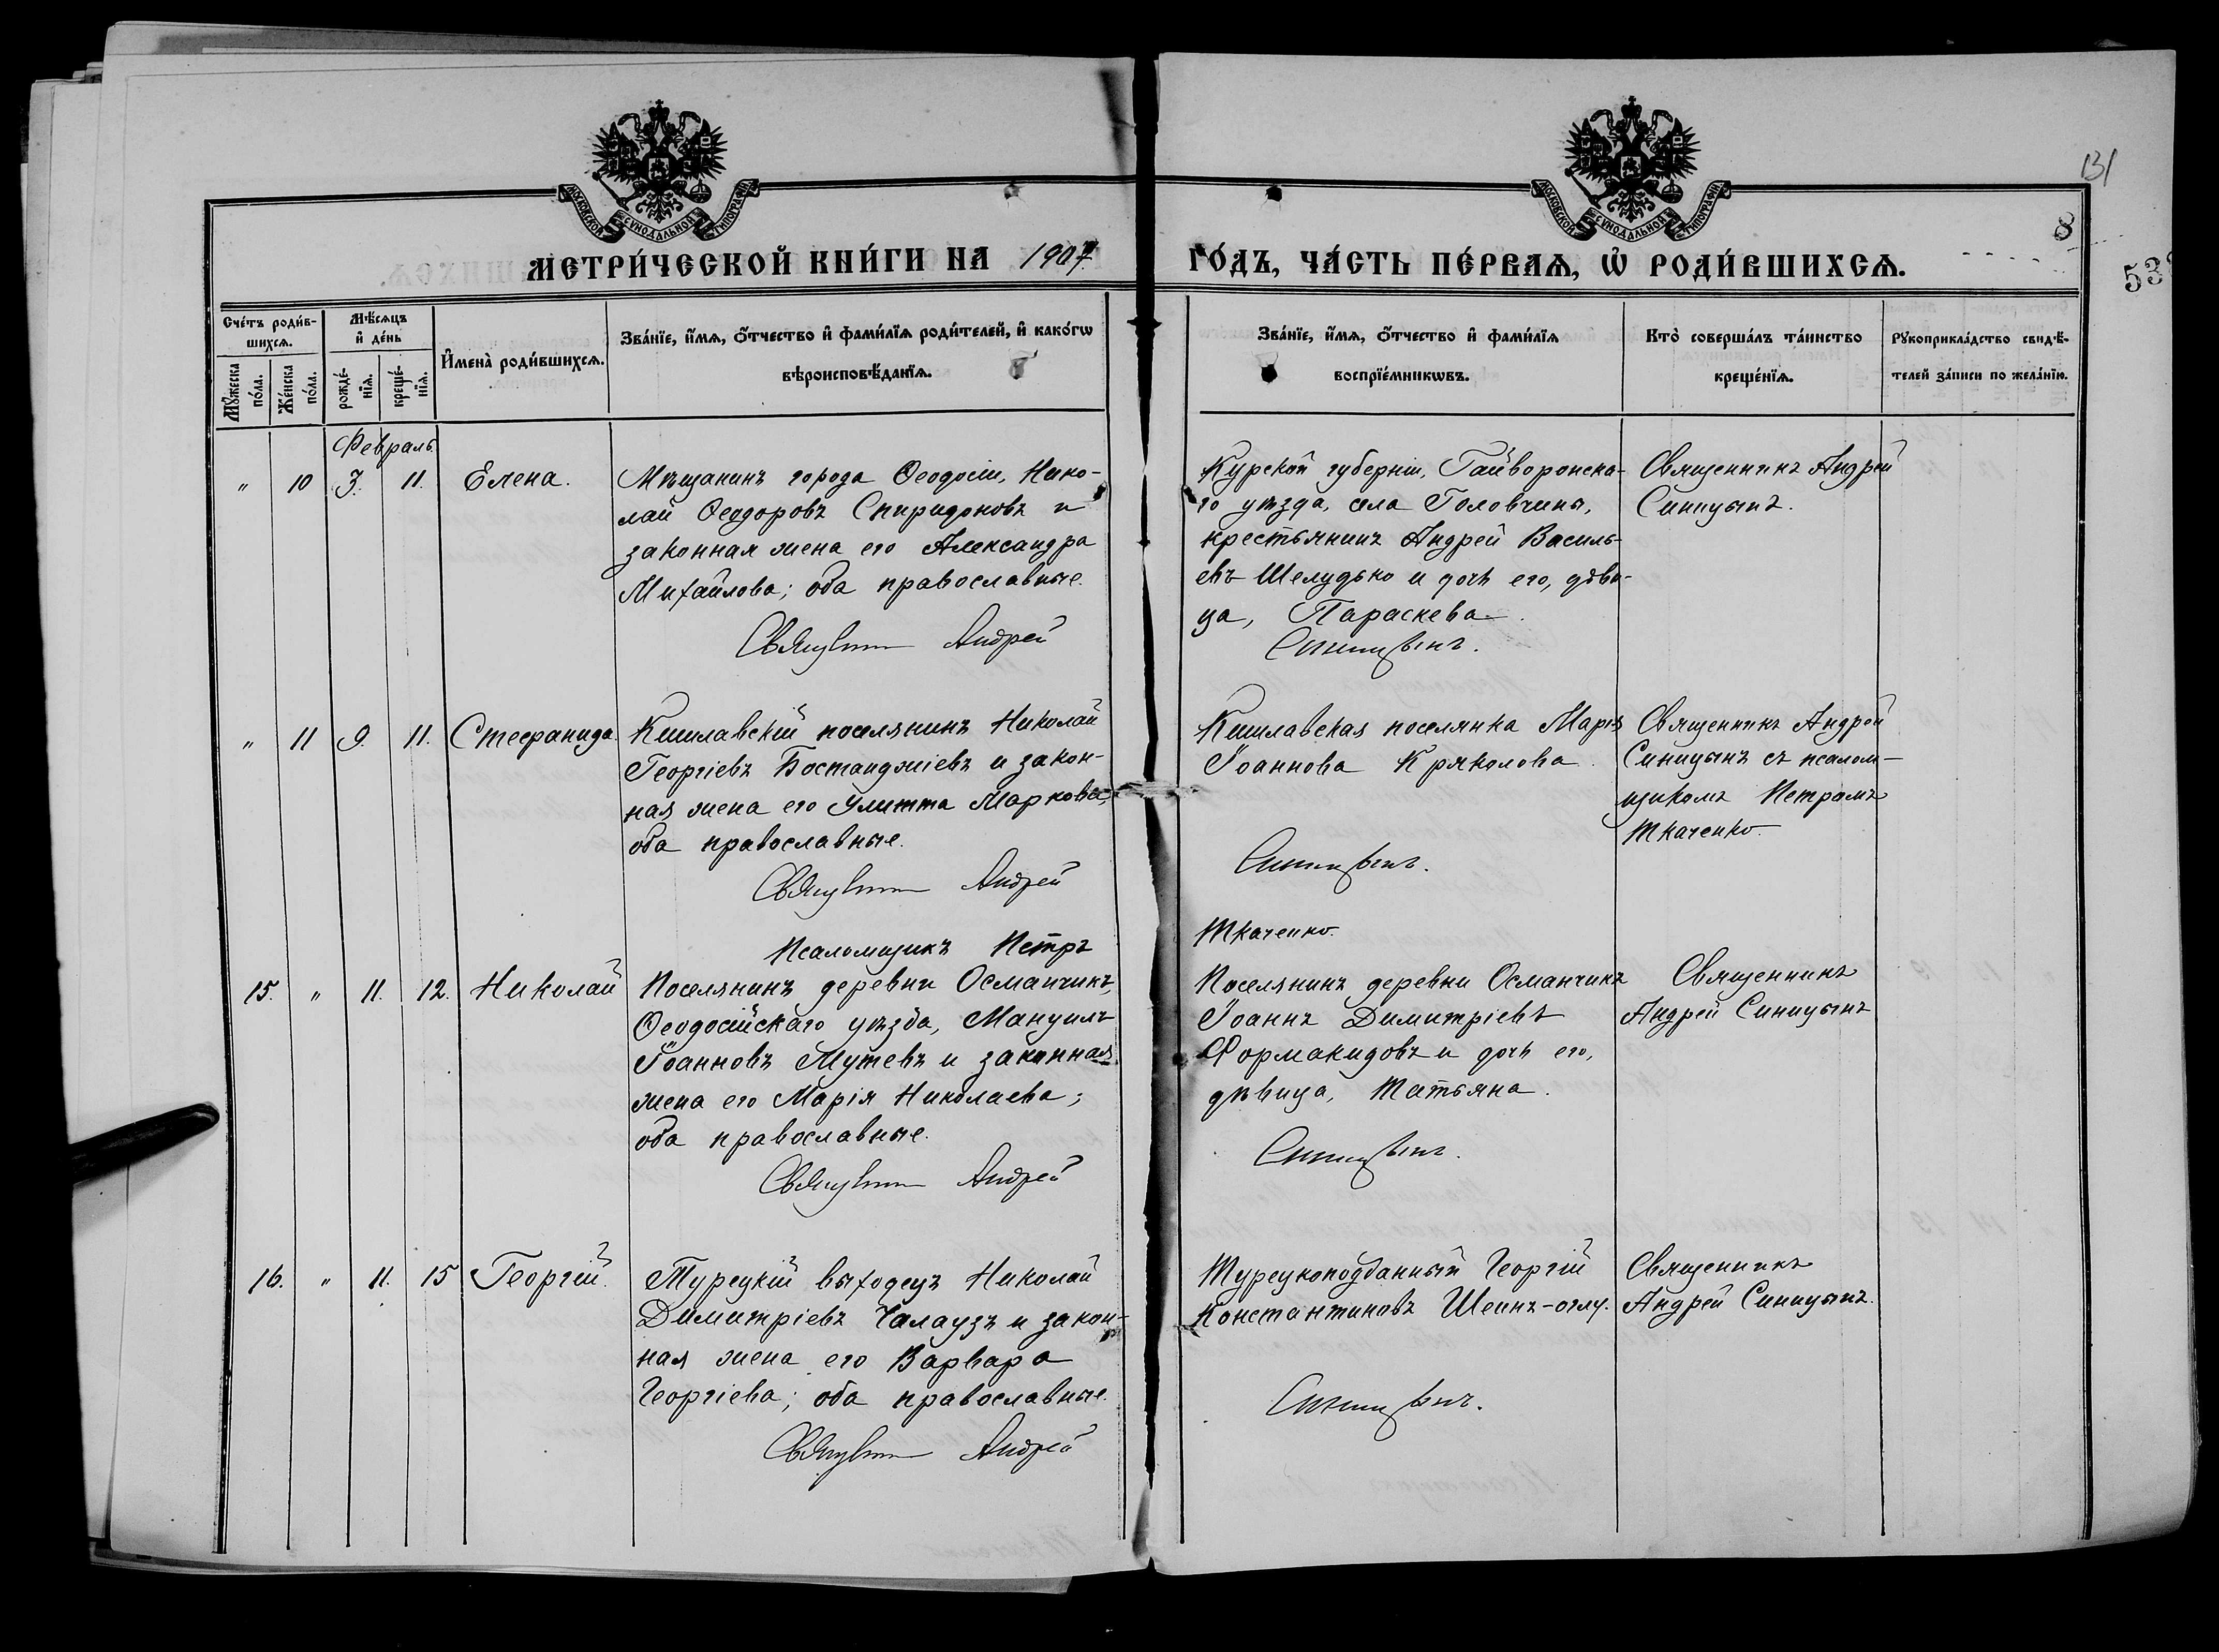 131
8
МОСКОВСКОЙ СѴНОДАЛЬНОЙ ТИПОГРАФІИ
МОСКОВСКОЙ СѴНОДАЛЬНОЙ ТИПОГРАФІИ
МЕТРИ́ЧЕСКОЙ КНИ́ГИ НА 1907 ГО́ДЪ, ЧА́СТЬ ПЕ́РВАѦ, Ѡ҆ РОДИ́ВШИХСѦ.
53
Сче́тъ роди́в-
шихсѧ.
Мꙋ́жеска по́ла.
Же́нска по́ла.
Мѣ́сѧцъ и҆ де́нь
рожде́-нїѧ.
креще́-нїѧ.
И҆мена̀ роди́вшихсѧ.
Зва́нїе, и҆́мѧ, ѻ҆́тчество и҆ фами́лїѧ роди́телей, и҆ како́гѡ
вѣроисповѣ́данїѧ.
Зва́нїе, и҆́мѧ, ѻ҆́тчество и҆ фами́лїѧ
воспрїе́мникѡвъ.
Кто̀ соверша́лъ та́инство
креще́нїѧ.
Рꙋкоприкла́дство свидѣ́-
телей за́писи по жела́нїю.
Февраль
" 10 3. 11. Елена.
Мѣщанинъ города Ѳеодосіи, Нико-
лай Ѳеодоровъ Спиридоновъ и
законная жена его Александра
Михайлова; оба православные.
Священникъ Андрей
Курской губерніи, Гайворонска-
го уѣзда, села Головчины,
крестьянинъ Андрей Василь-
евъ Шелудько и дочь его, дѣви-
ца, Параскева.
Синицынъ.
Священникъ Андрей
Синицынъ.
" 11 9. 11. Стефанида
Кишлавскій поселянинъ Николай
Георгіевъ Бостанджіевъ и закон-
ная жена его Улитта Маркова,
оба православные.
Священникъ Андрей
Псаломщикъ Петръ
Кишлавская поселянка Марія
Іоаннова Кряколова.
Синицынъ.
Ткаченко.
Священникъ Андрей
Синицынъ съ псалом-
щикомъ Петромъ
Ткаченко.
15. " 11. 12. Николай
Поселянинъ деревни Османчикъ,
Ѳеодосійскаго уѣзда, Мануилъ
Іоанновъ Мутевъ и законная
жена его Марія Николаева;
оба православные.
Священникъ Андрей
Поселянинъ деревни Османчикъ
Іоаннъ Димитріевъ
Формакидовъ и дочь его,
дѣвица, Татьяна.
Синицынъ.
Священникъ
Андрей Синицынъ
16. " 11. 15 Георгій.
Турецкій выходецъ Николай
Димитріевъ Чалаузъ и закон-
ная жена его Варвара
Георгіева; оба православные.
Священникъ Андрей
Турецкоподданный Георгій
Константиновъ Шеинъ-оглу.
Синицынъ.
Священникъ
Андрей Синицынъ.